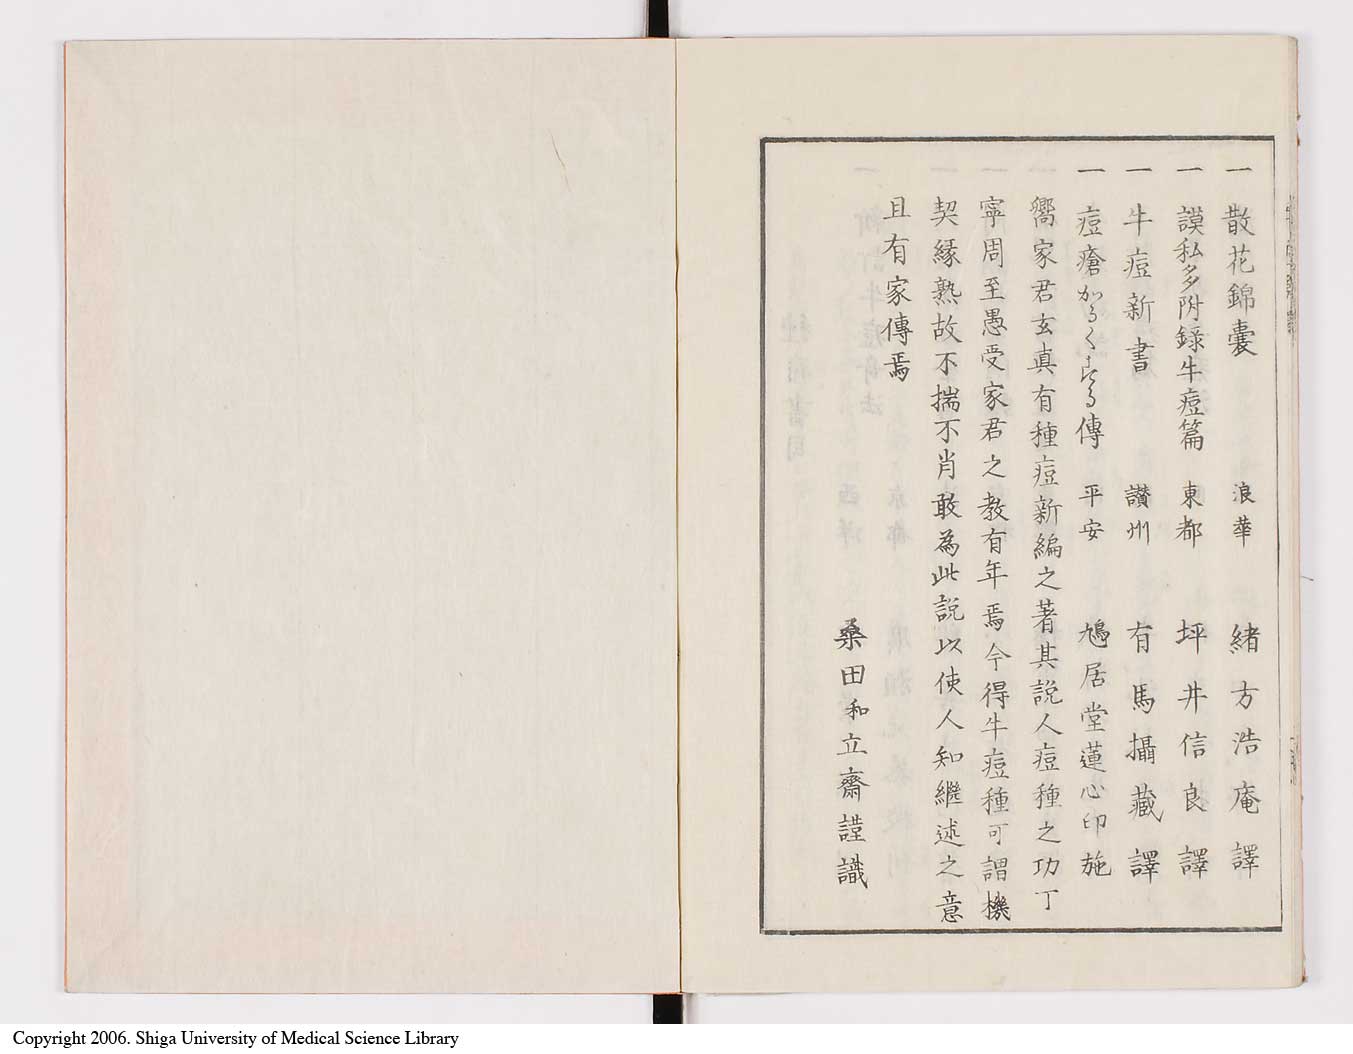 一 散花錦囊 浪華 緒方浩庵譯
一 謨私多附錄牛痘篇 東都 坪井信良譯
一 牛痘新書 讃州 有馬攝藏譯
一 痘瘡かろくする傳 平安 鳩居堂蓮心印施
嚮家君玄真有種痘新編之著其説人痘種之功丁
寧周至愚受家君之教有年焉今得牛痘種可謂機
契縁熟故不揣不肖敢為此説以使人知繼述之意
且有家傳焉
桑田和立齋謹識
Copyright 2006. Shiga University of Medical Science Library